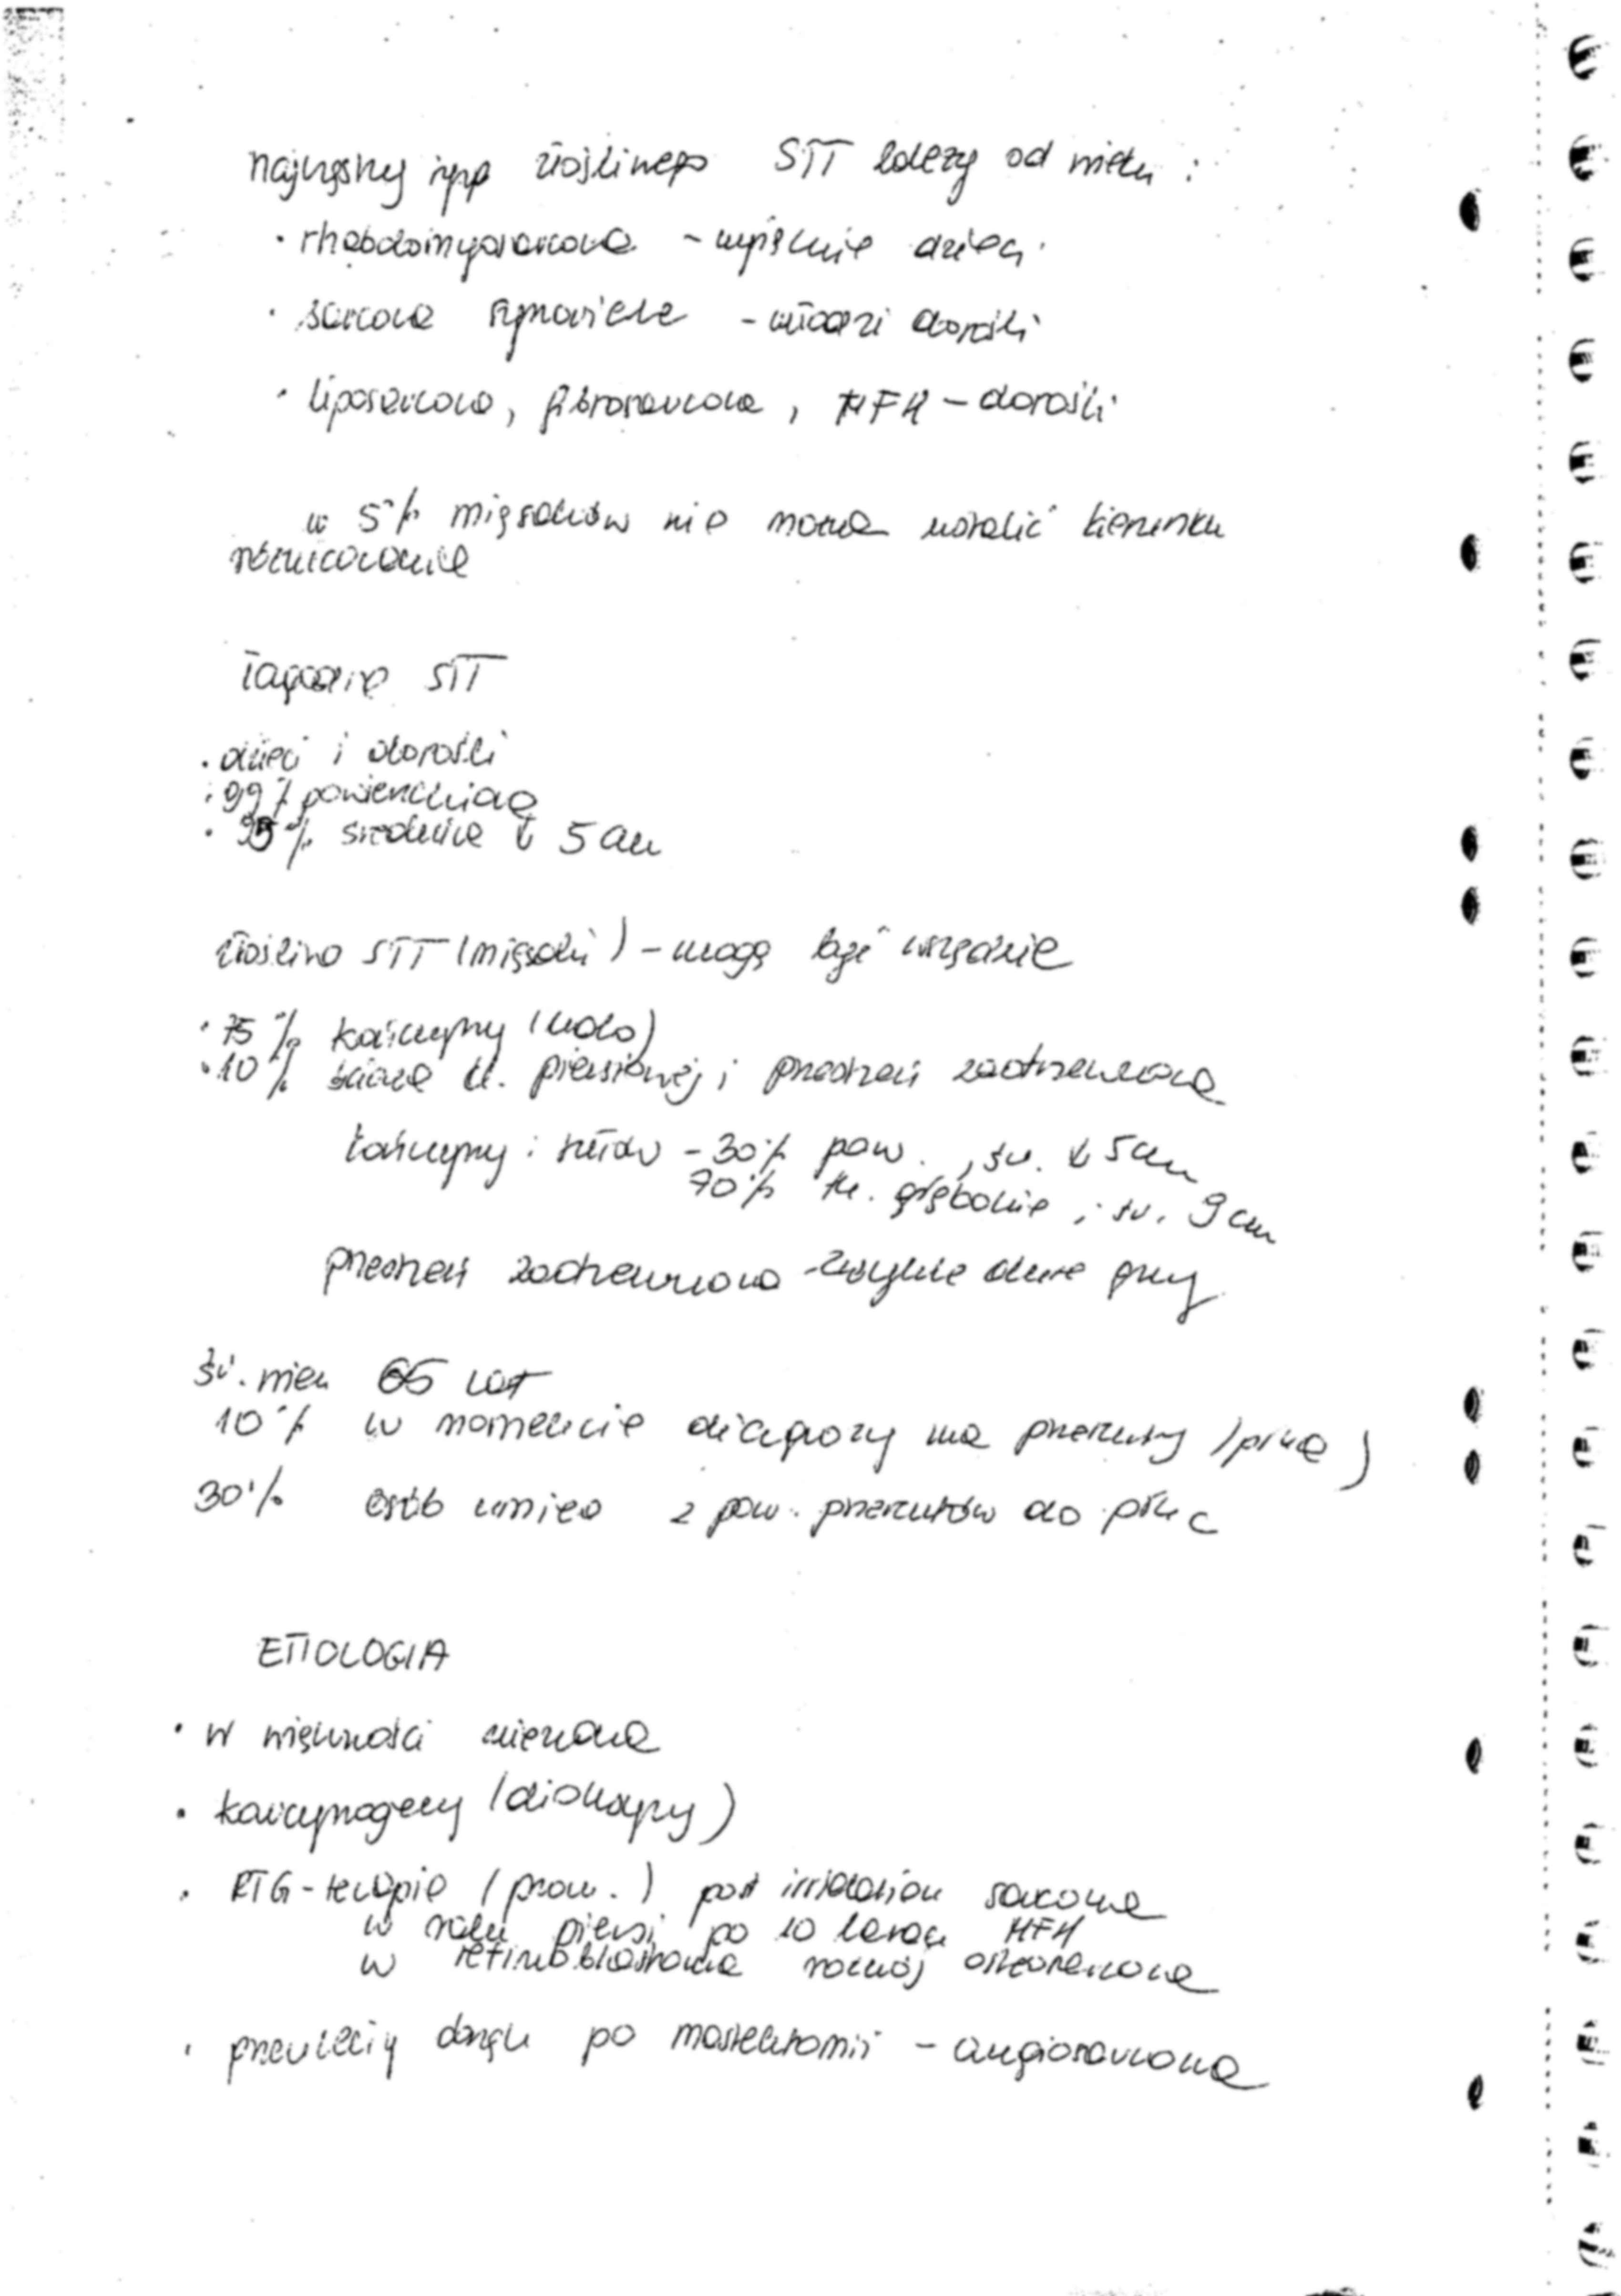 najczęstszy typ złośliwego STT zależy od wieku :
· rhabdomyosarcoma - wyłącznie dzieci
· sarcoma synoviale - młodzi dorośli
· liposarcoma, fibrosarcoma, MFH - dorośli
w 5% mięsaków nie można ustalić kierunku
różnicowania
łagodne STT
· dzieci i dorośli
· 99% powierzchnia
· 95% średnica 5 cm
złośliwe STT (mięsaki) - mogą być wszędzie
· 75% kończyny (udo)
· 10% ściana kl. piersiowej i przestrzeń zaotrzewnowa
kończyny i tułów - 30% pow. , śr. 5 cm
70% tk. głębokie , śr. 9 cm
przestrzeń zaotrzewnowa - zwykle duże guzy
śr. wiek 65 lat
10% w momencie diagnozy ma przerzuty (płuca)
30% osób umiera z pow. przerzutów do płuc
ETIOLOGIA
· w większości nieznana
· karcynogeny (dioksyny)
· RTG-terapia (prom.) post irridation sarcoma
w raku piersi po 10 latach MFH
w retinoblastoma rozwój osteosarcoma
· przewlekły obrzęk po mastektomii - angiosarcoma